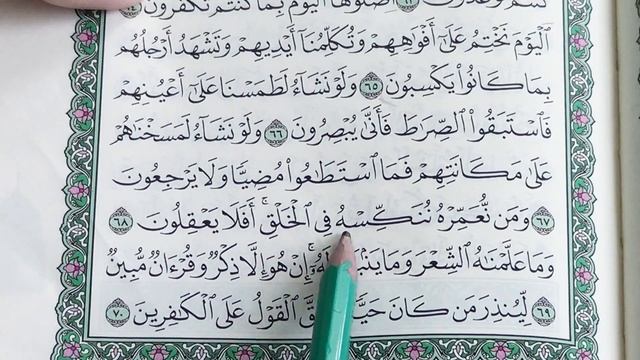 كنتم توعدون ٦٣ ٱصلوها ٱليوم بما كنتم تكفرون ٦٤
ٱلْيَوْمَ نَخْتِمُ عَلَىٰٓ أَفْوَٰهِهِمْ وَتُكَلِّمُنَآ أَيْدِيهِمْ وَتَشْهَدُ أَرْجُلُهُم
بِمَا كَانُوا۟ يَكْسِبُونَ ٦٥ وَلَوْ نَشَآءُ لَطَمَسْنَا عَلَىٰٓ أَعْيُنِهِمْ
فَٱسْتَبَقُوا۟ ٱلصِّرَٰطَ فَأَنَّىٰ يُبْصِرُونَ ٦٦ وَلَوْ نَشَآءُ لَمَسَخْنَٰهُمْ
عَلَىٰ مَكَانَتِهِمْ فَمَا ٱسْتَطَٰعُوا۟ مُضِيًّا وَلَا يَرْجِعُونَ
٦٧ وَمَن نُّعَمِّرْهُ نُنَكِّسْهُ فِى ٱلْخَلْقِ ۖ أَفَلَا يَعْقِلُونَ ٦٨
وَمَا عَلَّمْنَٰهُ ٱلشِّعْرَ وَمَا لَهُۥٓ ۚ إِنْ هُوَ إِلَّا ذِكْرٌ وَقُرْءَانٌ مُّبِينٌ
٦٩ لِّيُنذِرَ مَن كَانَ حَيًّا ٱلْقَوْلُ عَلَى ٱلْكَٰفِرِينَ ٧٠